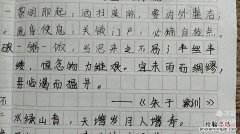 黎明即起，洒扫庭除，要内外整洁；
既昏便息，关锁门户，必亲自检点。
一粥一饭，当思来之不易；半丝半
缕，恒念物力维艰。宜未雨而绸缪，
毋临渴而掘井。
——《朱子家训》
山青，天增岁月人增寿。